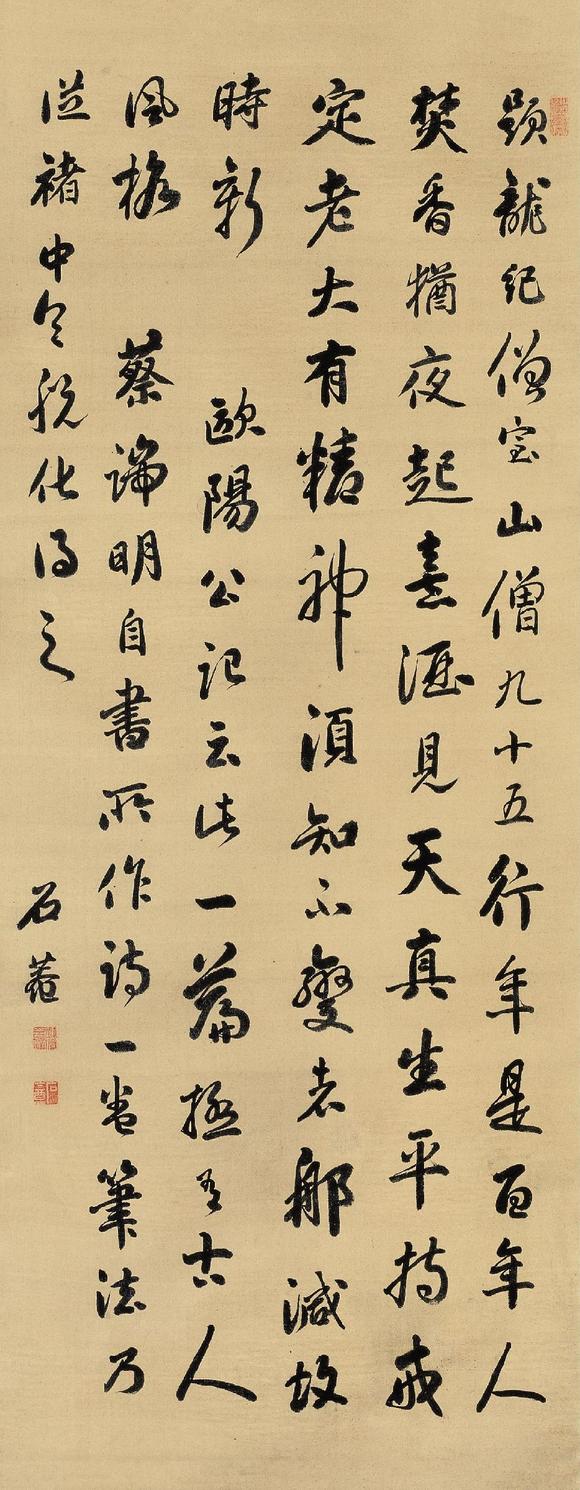 題龍紀僧室山僧九十五行年是百年人
焚香猶夜起憙酒見天真生平持戒
定老大有精神須知不變者那減故
時新 歐陽公記云此一篇極有古人
風格 蔡端明自書所作詩一卷筆法乃
從褚中令脫化得之
石菴